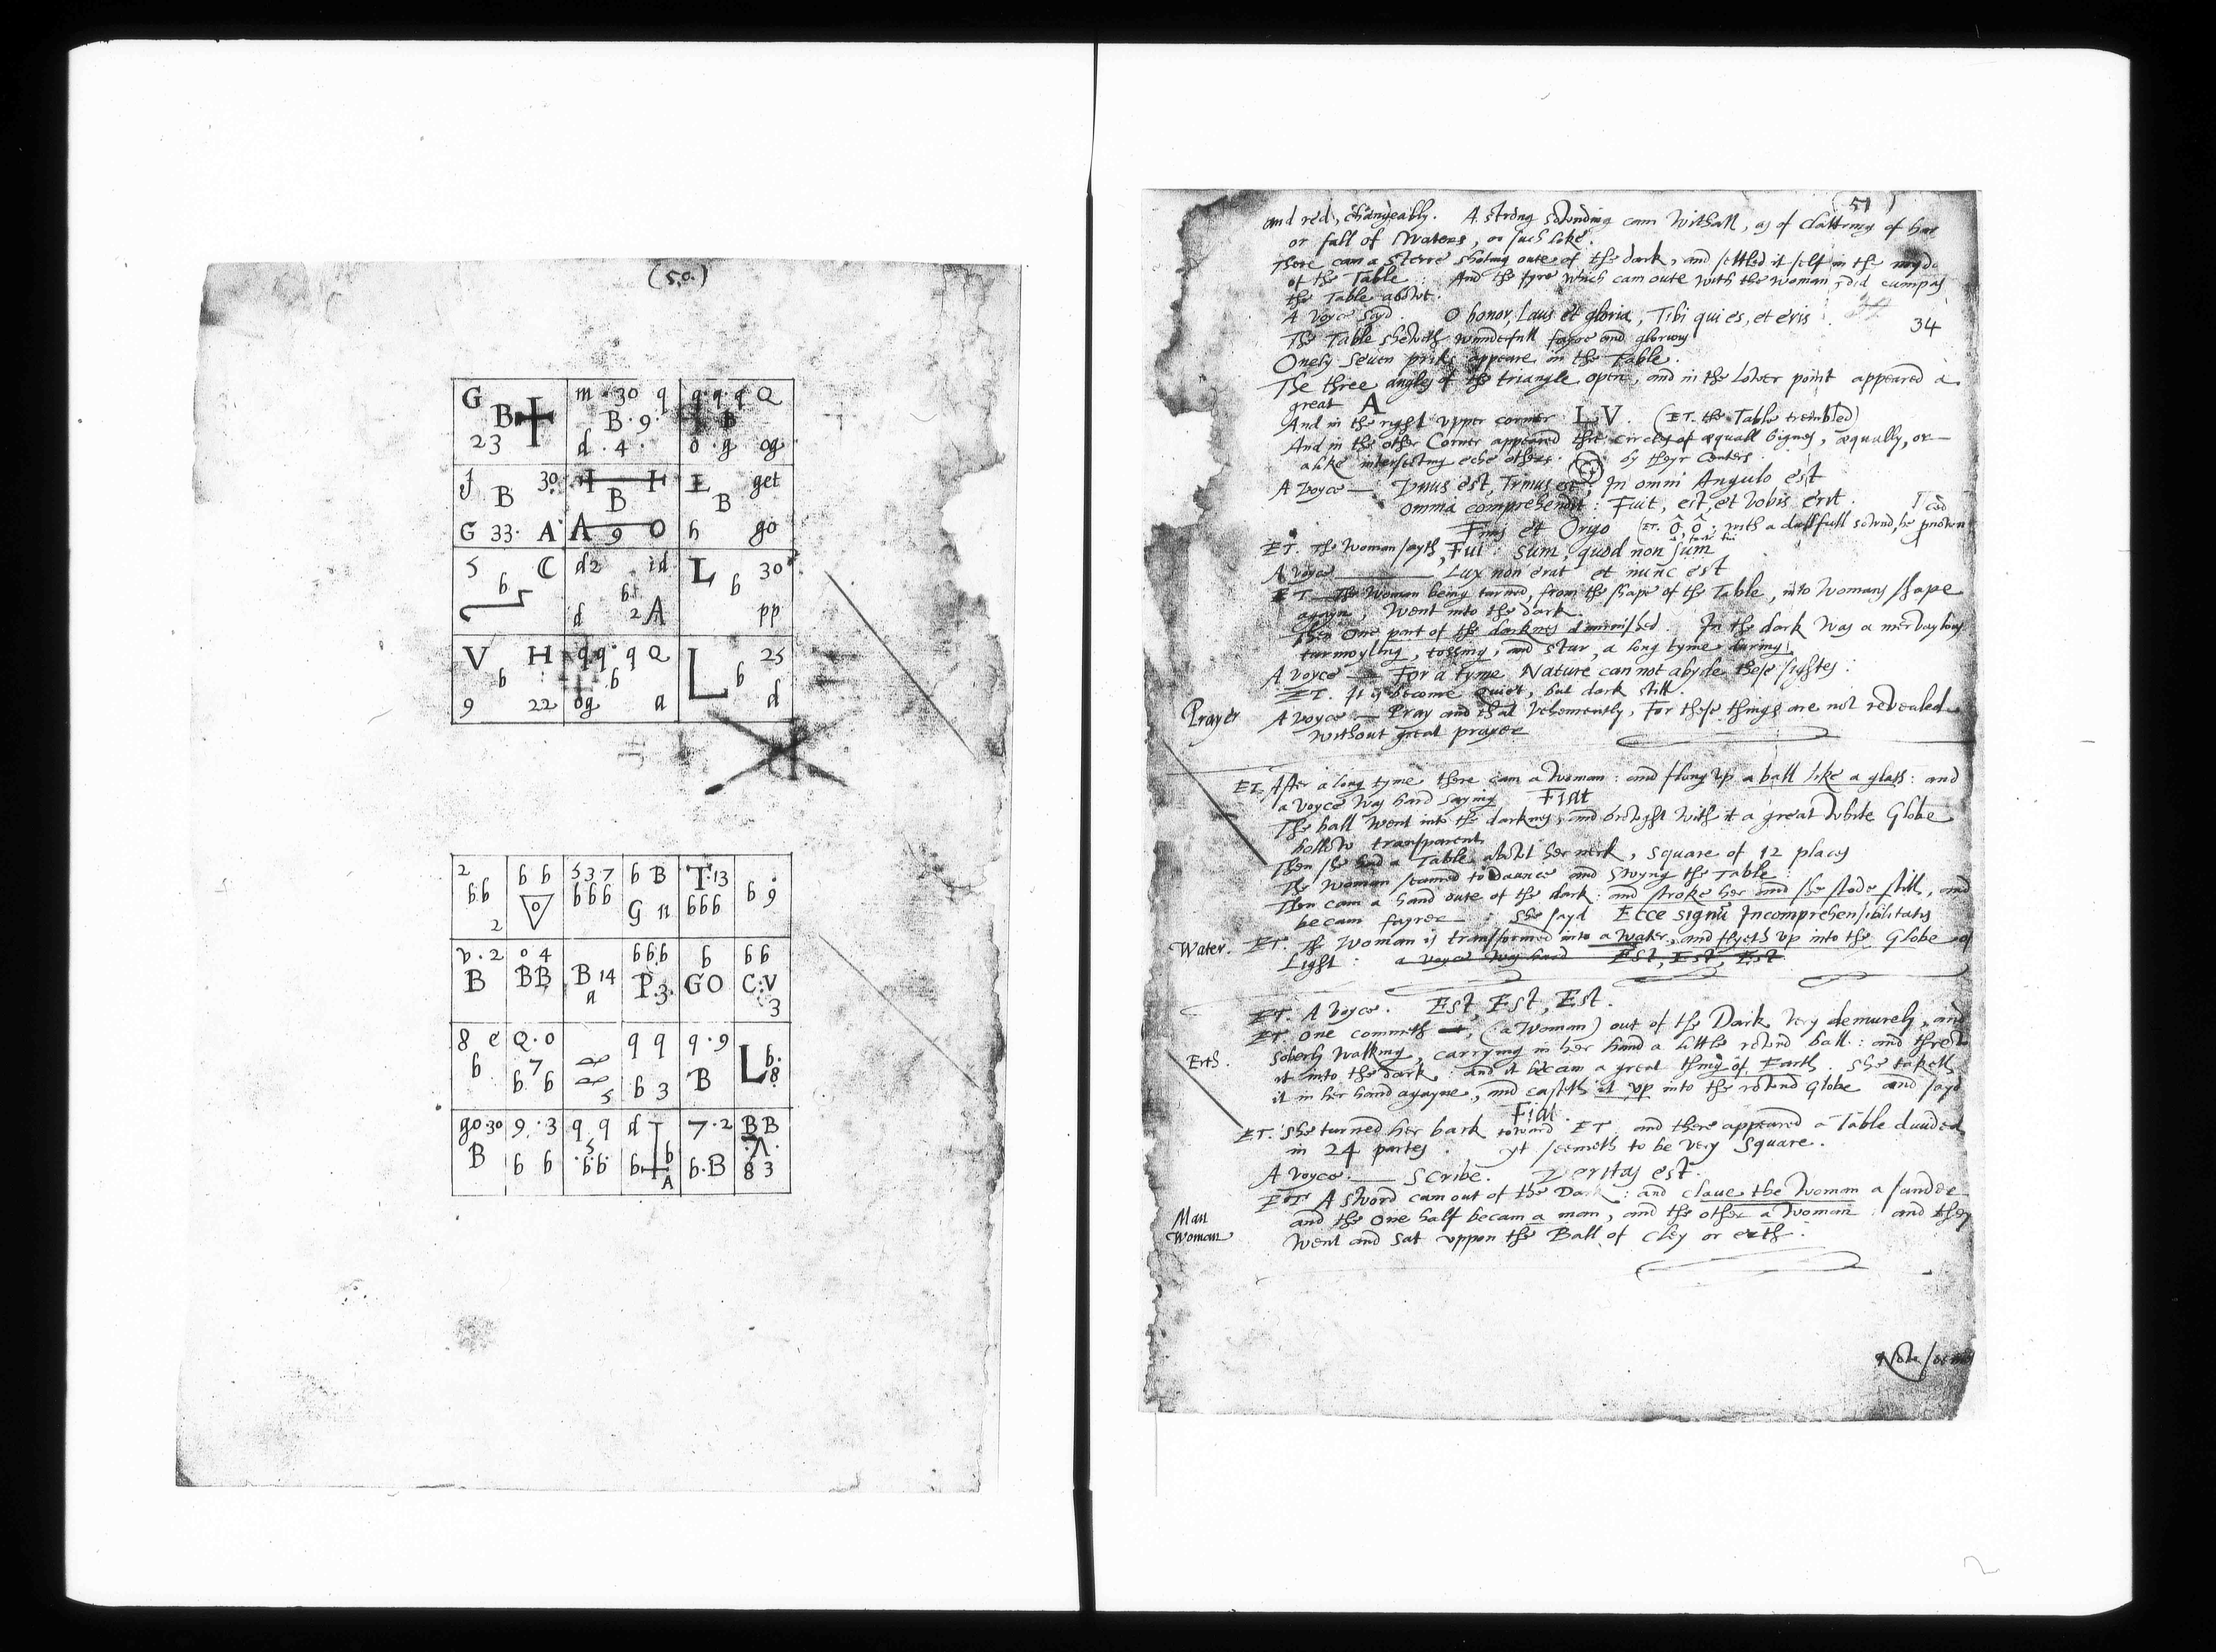 (50)
G B 23
m · 30 q B · 9 · d · 4 ·
q · q · q Q B o · g og
J 30 B G 33 · A
B A 9 O
get B h go
5 C b
d2 id b 2 A d
L 30 b pp
V H b 9 22
q q · q Q b og a
L 25 b d
2 b b 2
b b o
5 3 7 b b b
b B G 11
T · 13 b b b
b 9
v · 2 B
o 4 BB
B 14 a
b b b P · 3 ·
b GO
b b C · V 3
8 e b
Q · o 7 b · b
5
q q b 3
q · 9 B
L b · 8
go 30 B
9 · 3 b b
q q 5 · b b
d b b A
7 · 2 b · B
BB Λ 8 3
(51)
and red, changeably. A strong sownding cam withall, as of clattring of har
or fall of Waters, or such like.
There cam a sterre shoting oute of the dark, and settled it self in the myd
of the Table: And the fyre which cam oute with the woman, did cumpas
the Table abowt.
A voyce sayd. O honor, Laus et gloria, Tibi qui es, et eris
34
The Table sheweth wonderfull fayre and glorious
Onely seven priks appeare in the Table.
The three angles of the triangle open, and in the lower point appeared a
great A
And in the right upper corner LV. (ET. the Table trembled)
And in the other Corner appeared thre circles of æquall bignes, æqually, or
alike intersecting eche other by theyr Centers.
A voyce — Vnus est, Trinus est; In omni Angulo est
omnia comprehendit: Fuit, est, et vobis erit.
Finis et Origo (ET. ô, ô: with a dullfull sownd, he
ET. The Woman sayth, Fui: sum, quod non sum
A voyce — Lux non erat et nunc est
ET — The Woman being turned, from the shape of the Table, into womans shape
agayn, Went into the dark.
Then One part of the darknes diminished. In the dark was a mervaylous
turmoyling, tossing, and stur, a long tyme during.
A voyce — For a tyme Nature can not abyde these sightes:
ET. It is become quiet, but dark still.
Prayer A voyce — Pray and that vehemently, For these things are not revealed
without great prayer
ET. After a long tyme there cam a woman: and flung up a ball like a glass: and
a voyce was hard saying Fiat
The ball went into the darknes, and browght with it a great white Globe
hollow transparent.
Then she had a Table abowt her neck, square of 12 places
The Woman seamed to Daunce and swyng the Table:
Then cam a hand oute of the dark: and stroke her and she stode still, and
becam fayrer: she sayd Ecce signũ Incomprehensibilitatis
Water. ET. The Woman is transformed into a water, and flyeth up into the Globe of
Light: a voyce was hard Est, Est, Est
ET. A voyce. Est, Est, Est.
ET. One commeth, (a woman) out of the Dark very demurely, and
Erth. soberly walking, carrying in her hand a little rownd ball: and threw
it into the dark: and it becam a great thing of Earth. She taketh
it in her hand agayne, and casteth it up into the rownd Globe and sayd
Fiat.
ET. She turned her bark toward ET. and there appeared a Table divided
in 24 partes. yt seemeth to be very Square.
A voyce. — Scribe. Veritas est.
ET. A sword cam out of the Dark: and clave the woman a sunder
Man and the One half becam a man, and the other a woman: and they
Woman Went and sat uppon the Ball of cley or erth.